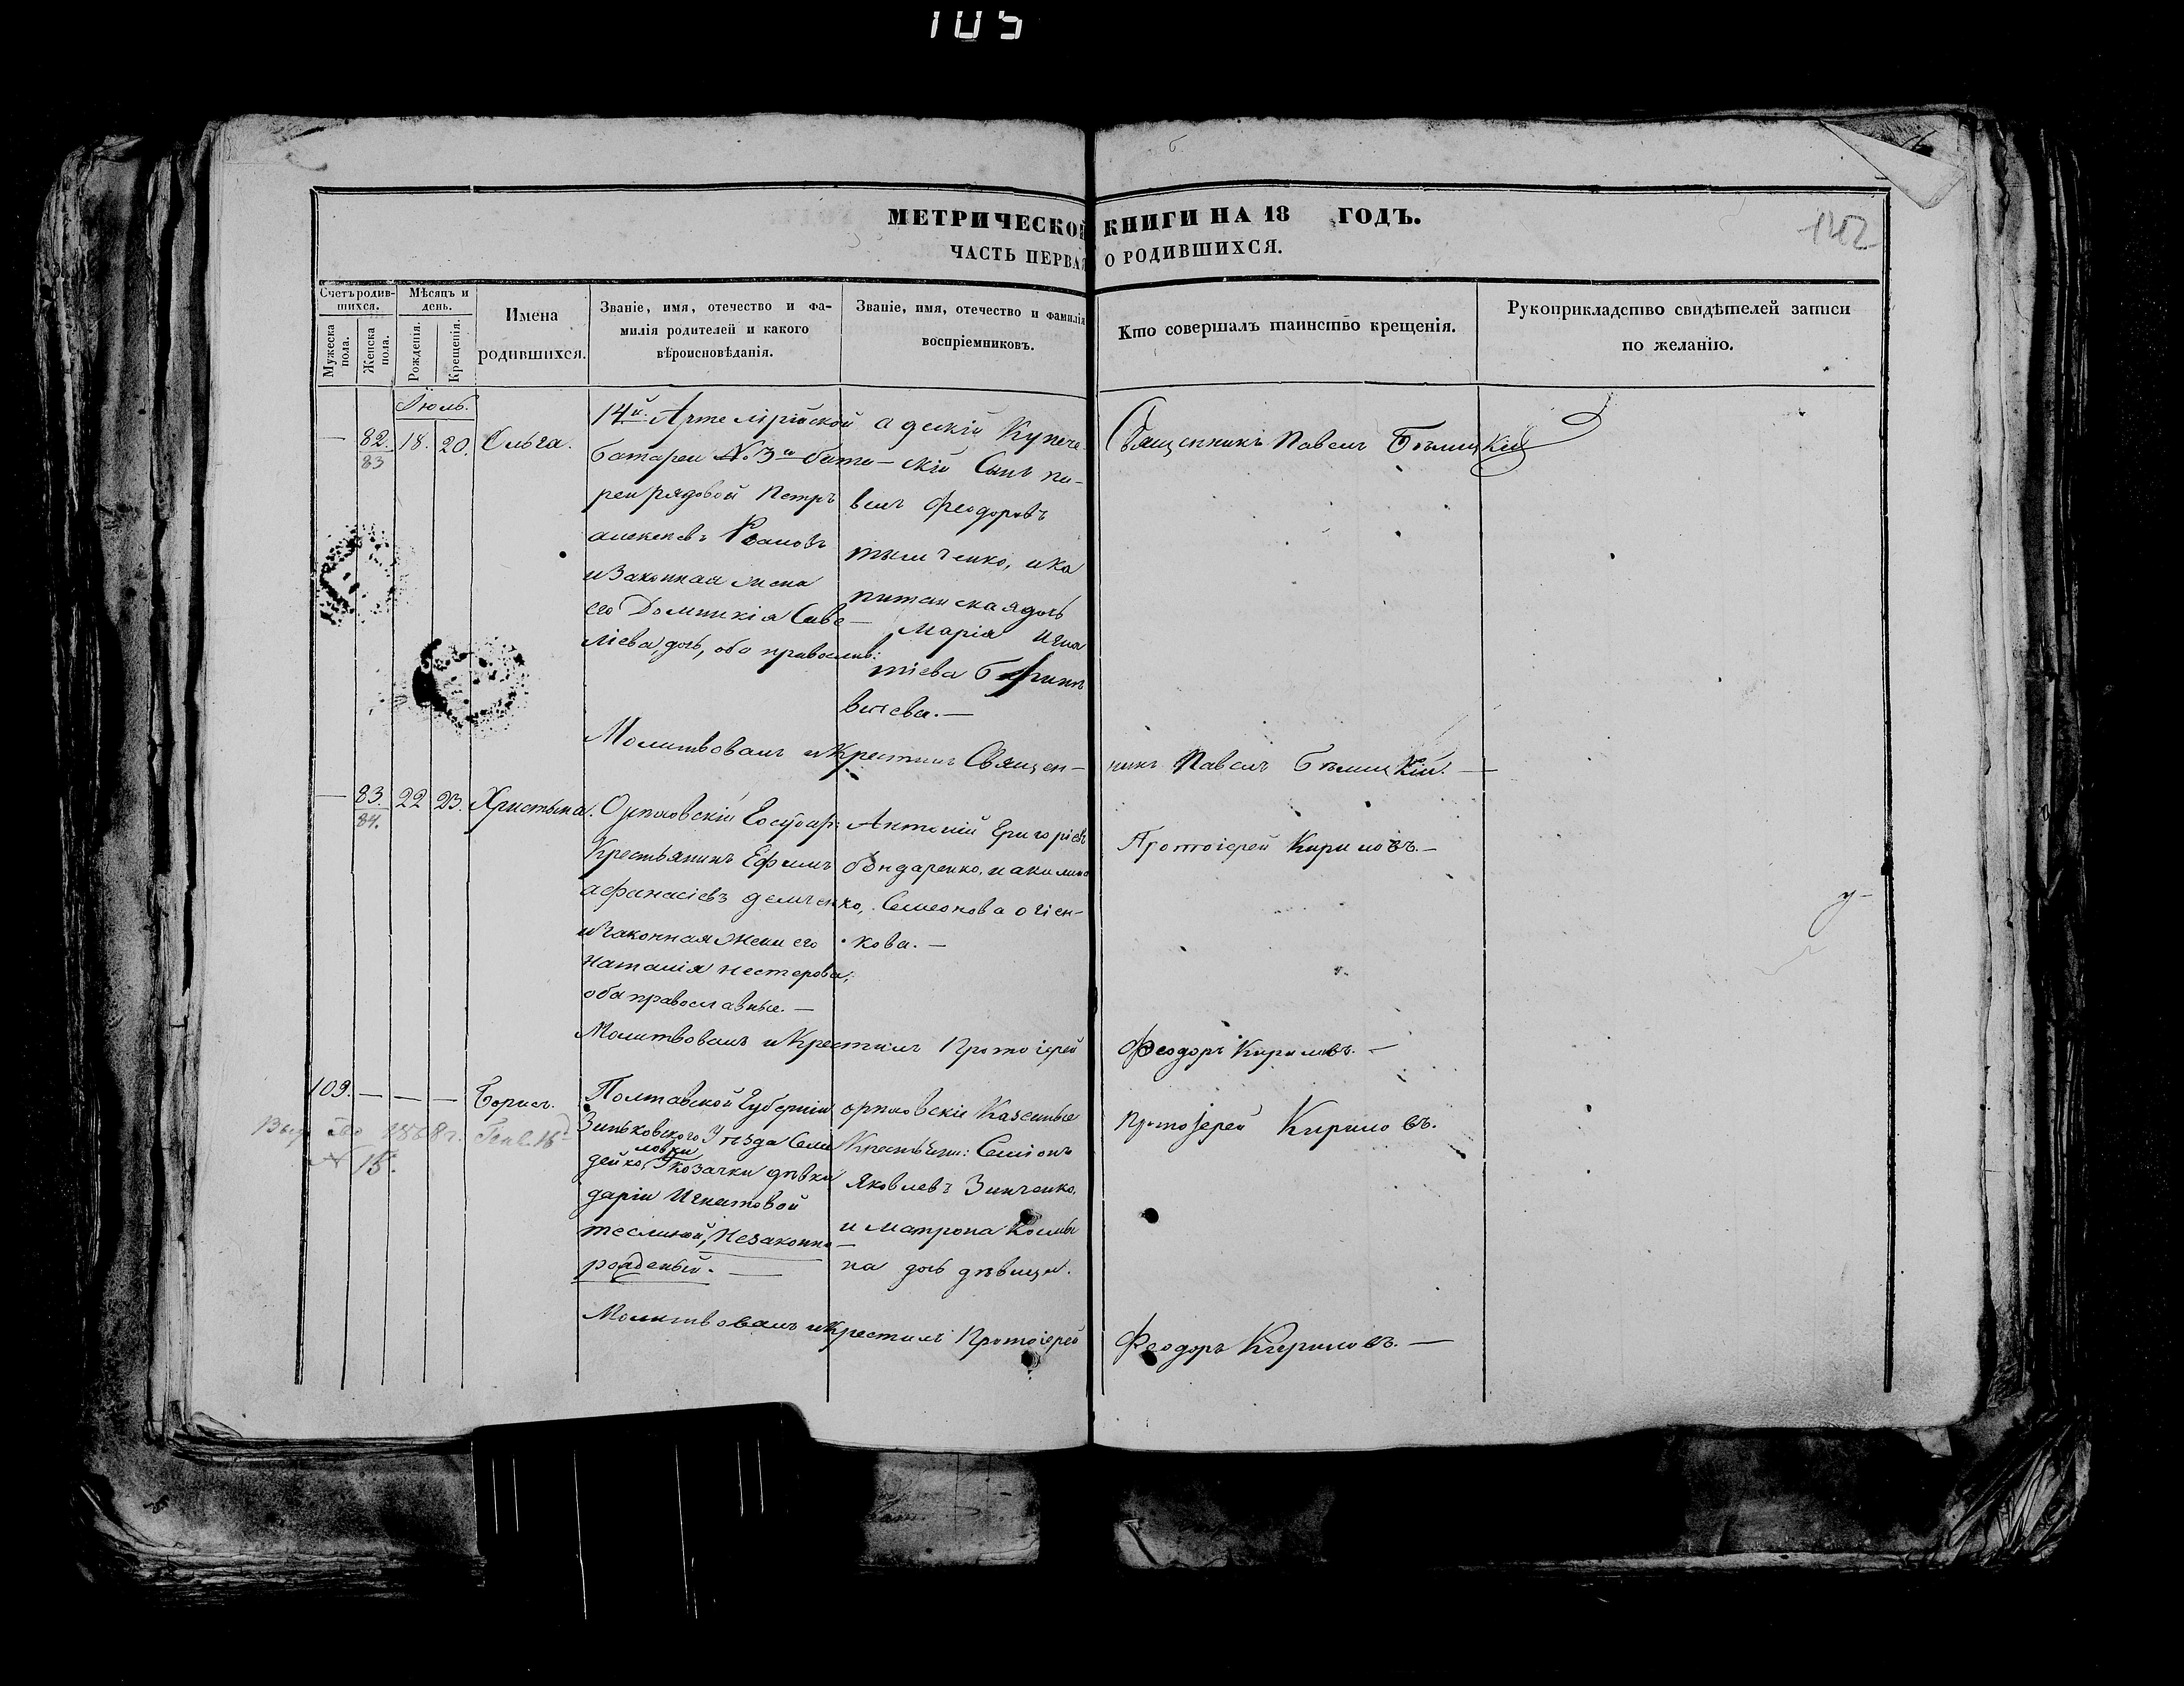 105
МЕТРИЧЕСКОЙ КНИГИ НА 18 ГОДЪ.
ЧАСТЬ ПЕРВАЯ О РОДИВШИХСЯ.
142
Счетъ родив-
шихся.
Мужеска
пола.
Женска
пола.
Мѣсяцъ и
день.
Рожденія.
Крещенія.
Имена
родившихся.
Званіе, имя, отечество и фа-
милія родителей и какого
вѣроисновѣданія.
Званіе, имя, отечество и фамилія
воспріемниковъ.
Кто совершалъ таинство крещенія.
Рукоприкладство свидѣтелей записи
по желанію.
Іюль.
— 82. 18. 20. Ольга.
83
14й Артелірійской
батареи №3й бата-
реи рядовой Петръ
алексеевъ
и законная жена
его Домникія Саве-
ліева дочь, оба православ:
адескій Купече-
скій Сынъ па-
велъ Феодоровъ
тымченко, и ка
питанская дочь
Марія Игна
тіева
вичева.—
Священникъ Павелъ Бѣлицкій
Молитвовалъ и Крестилъ Священ-
никъ Павелъ Бѣлицкій.—
— 83. 22 23. Христына.
84.
Орѣховскій Государ:
Крестьянинъ Ефимъ
афанасіевъ демченко,
и законная жена его
Наталія нестерова,
оба православные.—
Антоній Григоріевъ
бондаренко, и акилина
Семеонова огіен-
кова.—
Протоіерей Кириловъ.—
Молитвовалъ и Крестилъ Протоіерей
Феодоръ Кириловъ.—
109. — — — Борисъ.
1868 г. Генв. 16
№ 15.
Полтавской Губерніи
Зиньковского Уѣзда
Козачки дѣвки
даріи Игнатовой
теслиной, Незаконно
рожденый.—
орѣховскіе Казенные
Крестьяни: Симіонъ
Яковлевъ Зинченко,
и матрона Косми
на дочь дѣвица.
Протоіерей Кириловъ.
Молитвовалъ и Крестилъ Протоіерей
Феодоръ Кириловъ.—